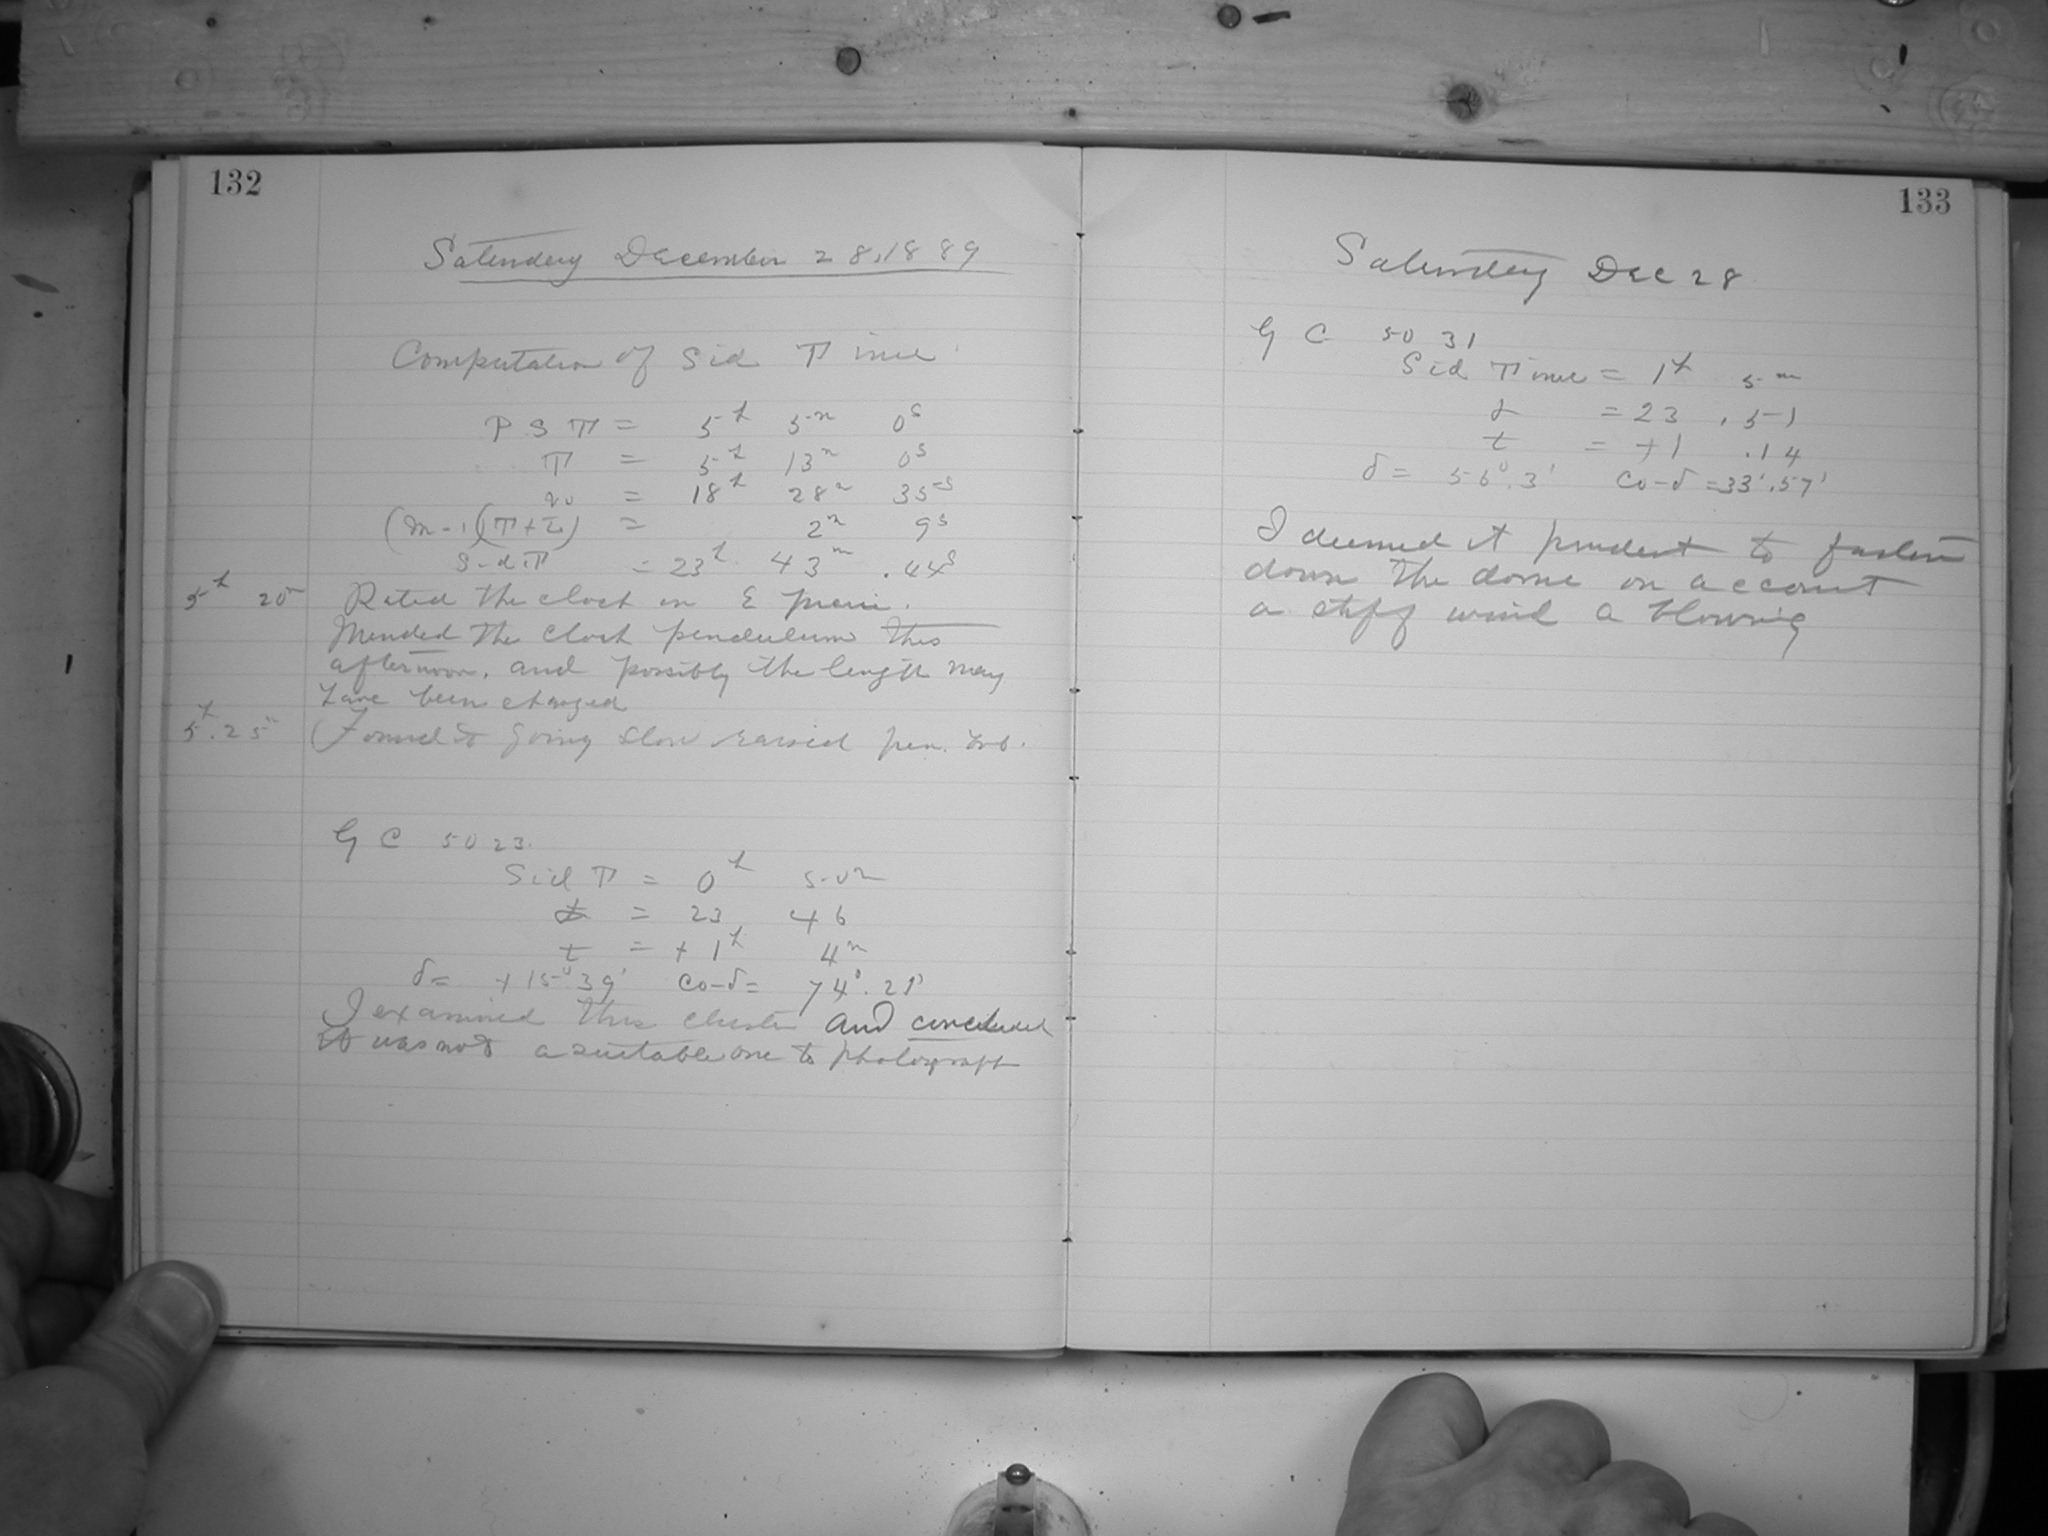 132
Saturday December 28, 1889
Computation of Sid Time
P S T = 5h 5m 0s
T = 5h 13m 0s
= 18h 28m 35s
(m-1)(T+L) = 2m 9s
Sid T = 23h 43m .44s
5h 20 Rated the clock in E
Mended the clock pendulum this
afternoon, and possibly the length may
have been changed
5h.25m (Found it going slow raised pen. bob.
G C 5023.
Sid T = 0h 50m
= 23 46
t = +1h 4m
δ = +15° 39' co-δ = 74°.21'
I examined this cluster and concluded
it was not a suitable one to photograph
133
Saturday Dec 28
G C 5031
Sid Time = 1h 5m
α = 23 .51
t = +1 .14
δ = 56°.3' co-δ = 33'.57'
I deemed it prudent to fasten
down the dome on account
a stiff wind a blowing